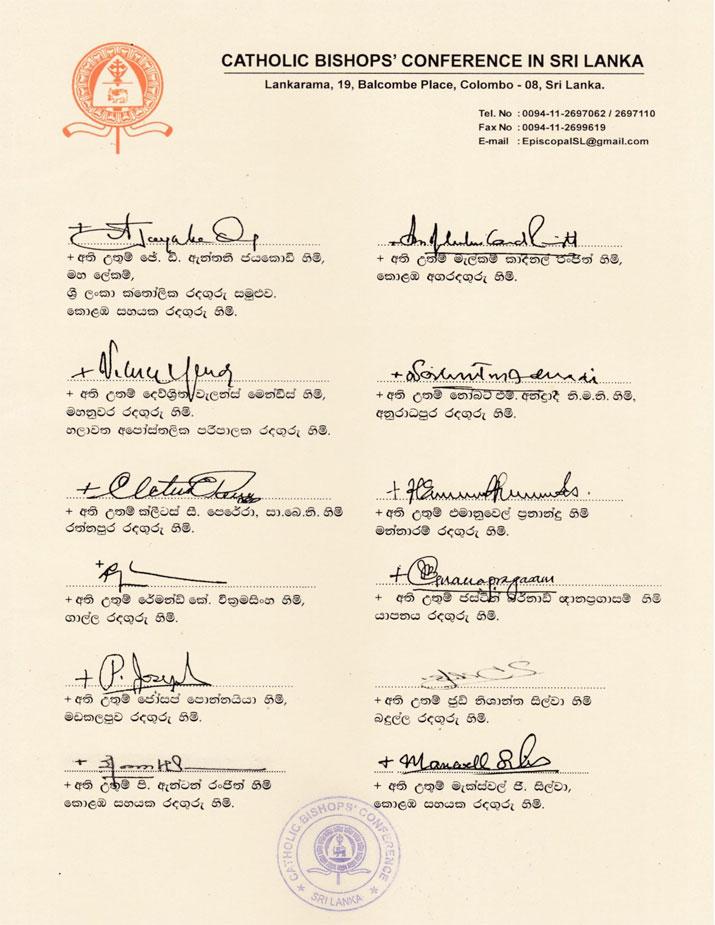 CATHOLIC BISHOPS' CONFERENCE IN SRI LANKA
Lankarama, 19, Balcombe Place, Colombo - 08, Sri Lanka.
Tel. No : 0094-11-2697062 / 2697110
Fax No : 0094-11-2699619
E-mail : EpiscopalSL@gmail.com
+ අති උතුම් ජේ. ඩී. ඇන්තනි ජයකොඩි හිමි,
මහ ලේකම්,
ශ්‍රී ලංකා කතෝලික රදගුරු සමුළුව.
කොළඹ සහයක රදගුරු හිමි.
+ අති උතුම් මැල්කම් කාදිනල් රංජිත් හිමි,
කොළඹ අගරදගුරු හිමි.
+ අති උතුම් වැලන්ස් මෙන්ඩිස් හිමි,
මහනුවර රදගුරු හිමි.
හලාවත අපෝස්තලික පරිපාලක රදගුරු හිමි.
+ අති උතුම් නෝබට් එම්. අන්ද්‍රාදි නි.ම.නි. හිමි,
අනුරාධපුර රදගුරු හිමි.
+ අති උතුම් ක්ලීටස් සී. පෙරේරා, සා.බෙ.නි. හිමි
රත්නපුර රදගුරු හිමි.
+ අති උතුම් එමානුවෙල් ප්‍රනාන්දු හිමි
මන්නාරම් රදගුරු හිමි.
+ අති උතුම් රේමන්ඩ් කේ. වික්‍රමසිංහ හිමි,
ගාල්ල රදගුරු හිමි.
+ අති උතුම් ජස්ටින් බර්නාඩ් ඥානප්‍රගාසම් හිමි
යාපනය රදගුරු හිමි.
+ P. Joseph
+ අති උතුම් ජෝසප් පොන්නයියා හිමි,
මඩකලපුව රදගුරු හිමි.
+ අති උතුම් ජූඩ් නිශාන්ත සිල්වා හිමි
බදුල්ල රදගුරු හිමි.
+ අති උතුම් පී. ඇන්ටන් රංජිත් හිමි
කොළඹ සහයක රදගුරු හිමි.
+ අති උතුම් මැක්ස්වල් ජී. සිල්වා,
කොළඹ සහයක රදගුරු හිමි.
CATHOLIC BISHOPS' CONFERENCE
SRI LANKA